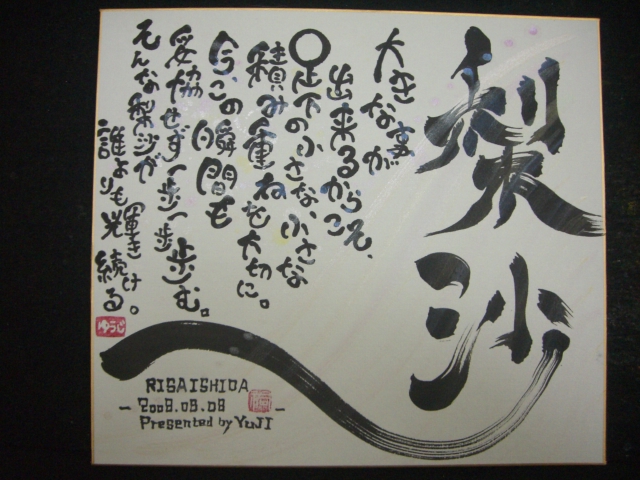 梨沙
大きな事が
出来るからこそ、
〇足下の小さな小さな
積み重ねを大切に。
今、この瞬間も
妥協せず一歩一歩歩む。
そんな梨沙が
誰よりも輝き続ける。
ゆうじ
RISAISHIDA
- 2008.08.08 -
Presented by YUJI